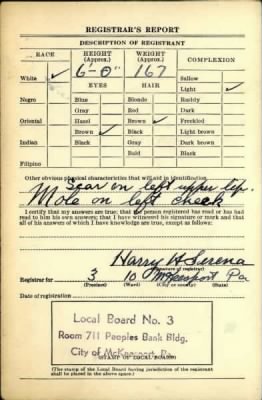 REGISTRAR'S REPORT
DESCRIPTION OF REGISTRANT
RACE HEIGHT (Approx.) WEIGHT (Approx.) COMPLEXION
White ✓ 6'-0" 167 Sallow
EYES HAIR Light ✓
Negro Blue Blonde Ruddy
Gray Red Dark
Oriental Hazel Brown ✓ Freckled
Brown ✓ Black Light brown
Indian Black Gray Dark brown
Bald Black
Filipino
Other obvious physical characteristics that will aid in identification
Scar on left upper lip.
Mole on left cheek
I certify that my answers are true; that the person registered has read or has had
read to him his own answers; that I have witnessed his signature or mark and that
all of his answers of which I have knowledge are true, except as follows:
Harry H Serena
(Signature of registrar)
Registrar for 3 10 McKeesport Pa
(Precinct) (Ward) (City or county) (State)
Date of registration
Local Board No. 3
Room 711 Peoples Bank Bldg.
City of McKeesport, Pa.
(STAMP OF LOCAL BOARD)
(The stamp of the Local Board having jurisdiction of the registrant
shall be placed in the above space.)